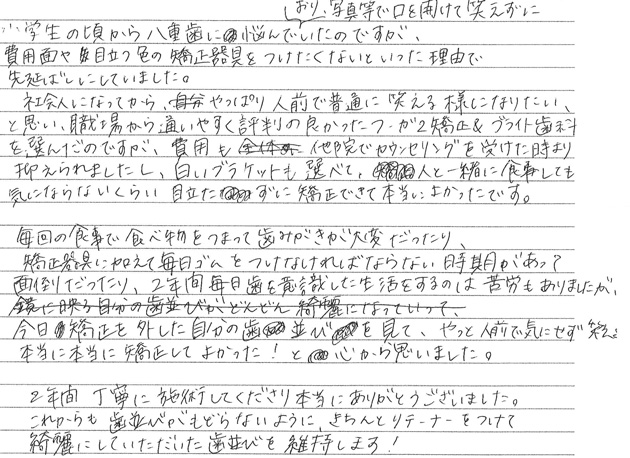 おり、写真等で口を開けて笑えずに
小学生の頃から八重歯に悩んでいたのですが、
費用面や目立つ色の矯正器具をつけたくないといった理由で
先延ばしにしていました。
社会人になってから、自分やっぱり人前で普通に笑える様になりたい、
と思い、職場から通いやすく評判の良かったつつが矯正&ブライト歯科
を選んだのですが、費用も 他院でカウンセリングを受けた時より
抑えられましたし、白いブラケットも選べて、人と一緒に食事しても
気にならないくらい目立たずに矯正できて本当によかったです。
毎回の食事で食べ物をつまって歯みがきが大変だったり、
矯正器具に加えて毎日ゴムをつけなければならない時期があって
面倒だったり、2年間毎日歯を意識した生活をするのは苦労もありましたが、
鏡に映る自分の歯並びがどんどん綺麗になっていって、
今日矯正を外した自分の歯並びを見て、やっと人前で気にせず笑え
本当に本当に矯正してよかった!と心から思いました。
2年間丁寧に施術してくださり本当にありがとうございました。
これからも歯並びがもどらないように、きちんとリテーナーをつけて
綺麗にしていただいた歯並びを維持します!